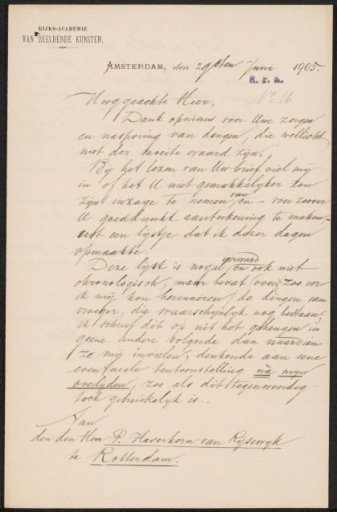 RIJKS-ACADEMIE
VAN BEELDENDE KUNSTEN.
AMSTERDAM, den 29sten Juni 1905.
R. v. a.
No 16
Hooggeachte Heer,
Dank opnieuw voor Uwe zorgen
en nasporing van dingen, die wellicht
niet der moeite waard zijn.
Bij het lezen van Uw brief viel mij
in of het U niet gemakkelijker zou
zijn inzage te nemen van, en - voor zoover
U goeddunkt aanteekening te maken -
uit een lijstje dat ik dezer dagen
opmaakte.
Deze lijst is nogal en ook niet
chronologisch, maar bevat voor zoo ver
ik mij kon herinneren de dingen van
vroeger, die waarschijnlijk nog bestaan.
ik schreef dit op uit het geheugen in
geene andere volgorde dan naarmate
ze mij invielen, denkende aan eene
eventueele tentoonstelling na mijn
overlijden, zoo als dit tegenwoordig
toch gebruikelijk is.
Aan
den Heer P. Haverkorn van Rijsewijk
te Rotterdam.